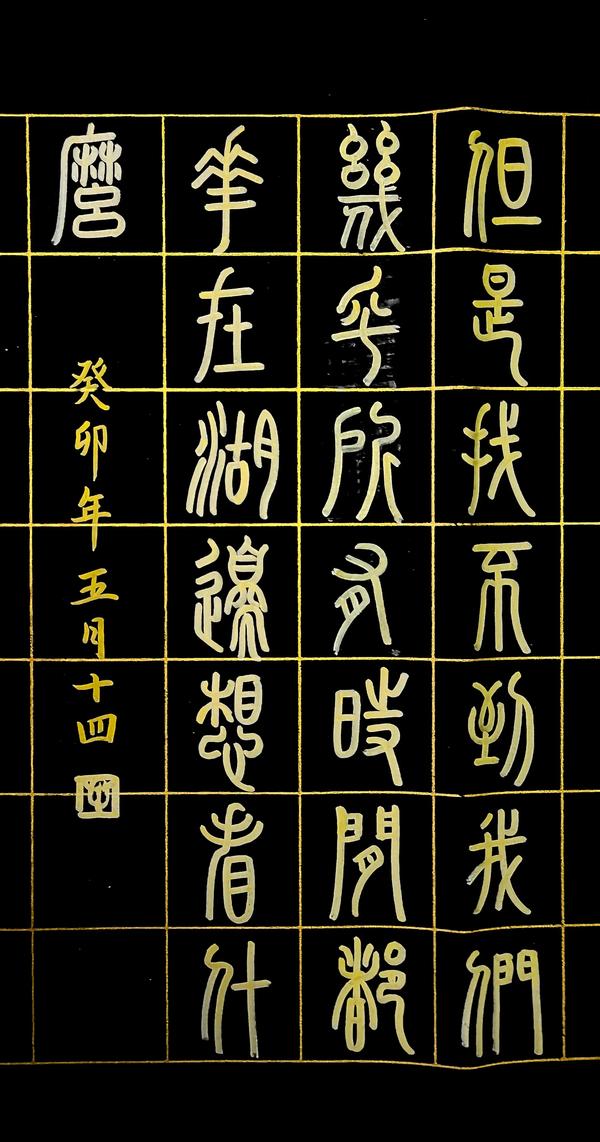 但是找不到我們
幾乎所有時間都
華在湖邊想着什
麼
癸卯年五月十四